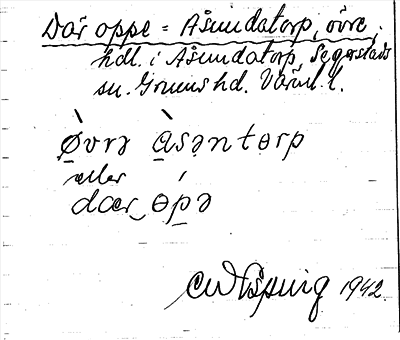 Där oppe = Åsundatorp, övre,
hdl. i Åsundatorp, Segerstads
sn. Grums hd. Värml. l.
Ø̀vrə àsəntɵrp
eller
dær‿ɵ́pə
1942.